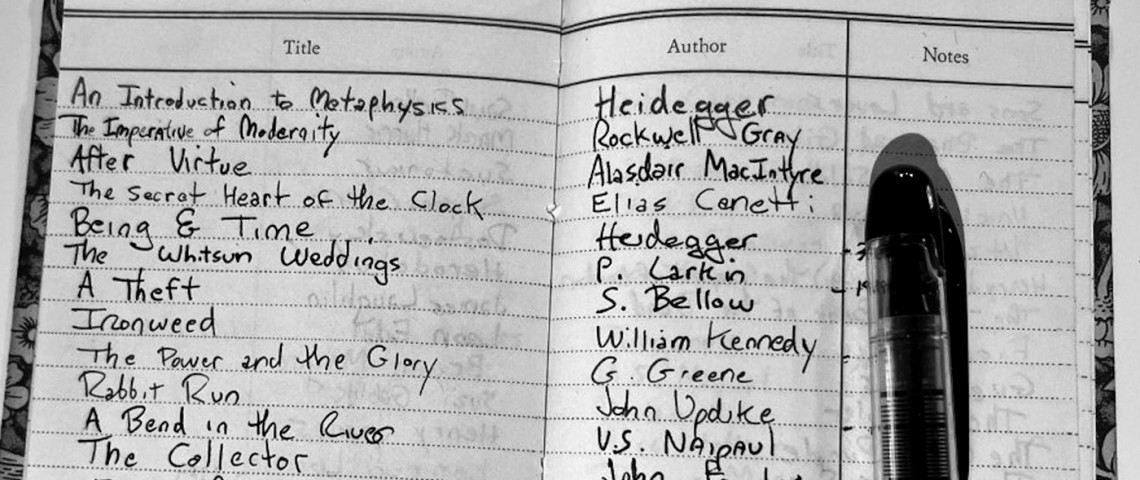 Title Author Notes
An Introduction to Metaphysics Heidegger
The Imperative of Modernity Rockwell Gray
After Virtue Alasdair MacIntyre
The Secret Heart of the Clock Elias Canetti
Being & Time Heidegger
The Whitsun Weddings P. Larkin
A Theft S. Bellow
Ironweed William Kennedy
The Power and the Glory G. Greene
Rabbit Run John Updike
A Bend in the River V.S. NAipaul
The Collector John